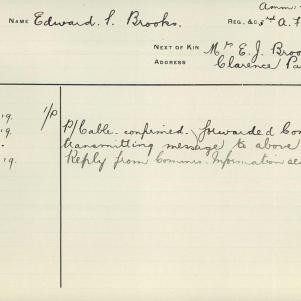 Amm:
NAME Edward. S. Brooks. REG. &C. 3rd A. F
NEXT OF KIN Mrs E. J. Broo
ADDRESS Clarence Pa
19. 1/P
19. P/Cable confirmed. forwarded Com
transmitting message to above
19. Reply from Commrs. Information